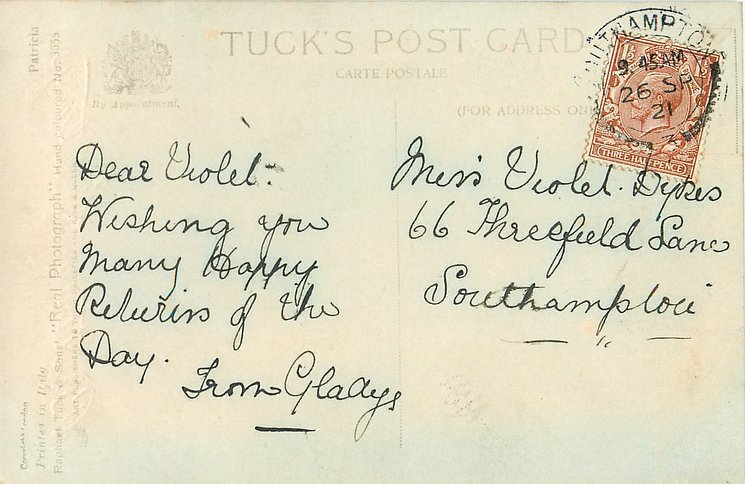 TUCK'S POST CARD
CARTE POSTALE
(FOR ADDRESS ON
By Appointment.
SOUTHAMPTON
9.45AM
26 SP
21
THREE HALFPENCE
Dear Violet.
Wishing you
Many Happy
Returns of the
Day.
From Gladys
Miss Violet. Dykes
66 Threefield Lane
Southampton
Patricia
"Real Photograph" Hand coloured No.
Raphael Tuck & Sons'
Printed in Italy
Copyright London